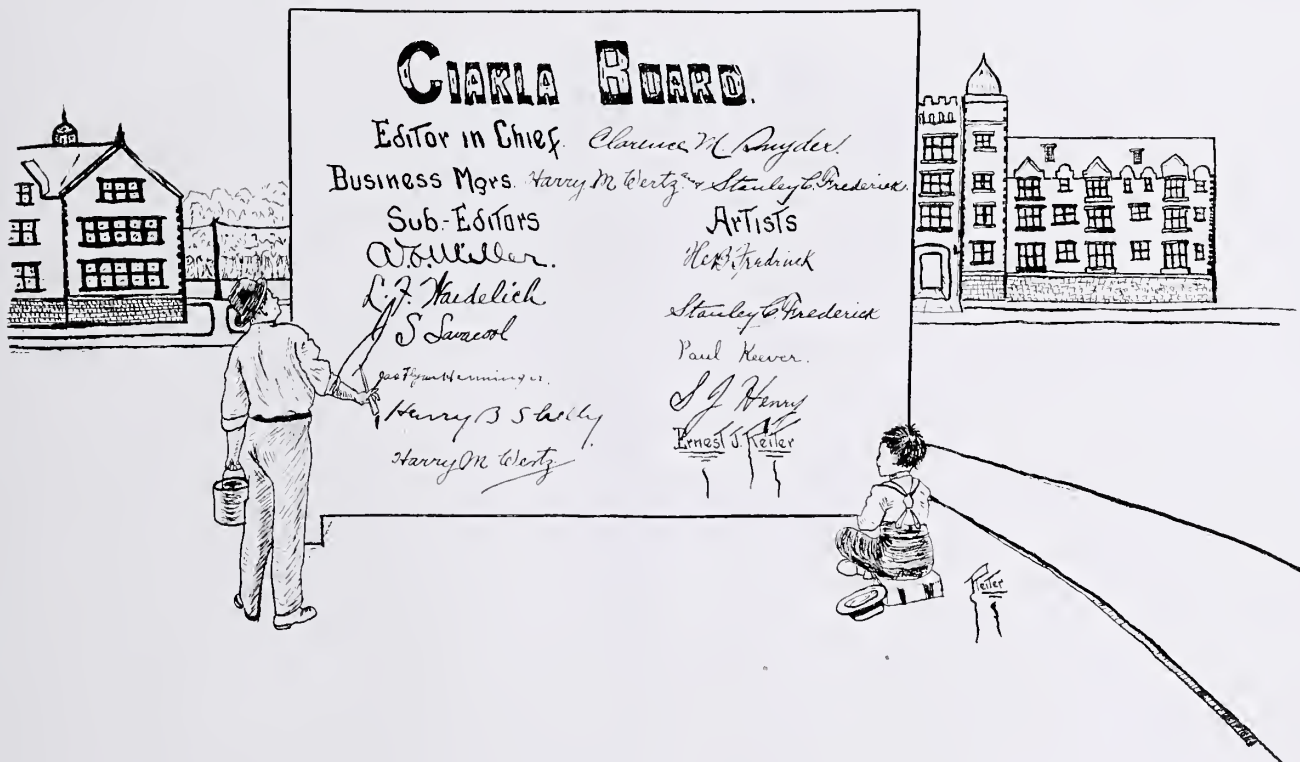 CIARLA BOARD.
Editor in Chief. Clarence M Snyder.
Business Mgrs. Harry M Wertz and Stanley C. Frederick.
Sub-Editors
Miller.
L. F. Waidelich
S Lavacool
Henninger.
Henry B Shelly
Harry M Wertz
Artists
Fredrick
Stanley C Frederick
Paul Keever.
S J Henry
Ernest J. Reiter
Reiter